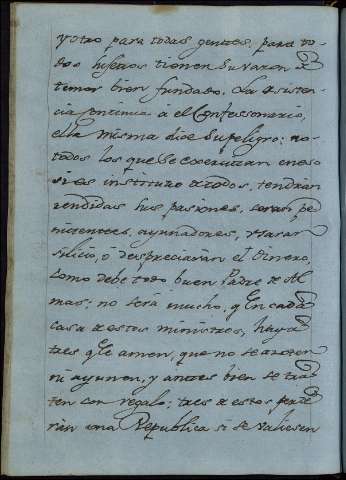 y otro para todas gentes, para to-
dos hijeros tienen su razon de
temor bien fundado. La asisten-
cia continua á el Confessonario,
ella misma dice su peligro: no
todos los que se exercitan en eso
si es instituto a todos, tendrán
rendidas sus pasiones, seran pe
nitentes, ayunadores, usaran
silicio, ó despreciaran el Dinero,
como debe todo buen Padre de Al
mas: no será mucho, q̃ en cada
casa de estos ministros, haya
tres q̃ le amen, que no se azoten
ni ayunen, y antes bien se tra
ten con regalo: tres de estos perde
ran una Republica si se valiesen